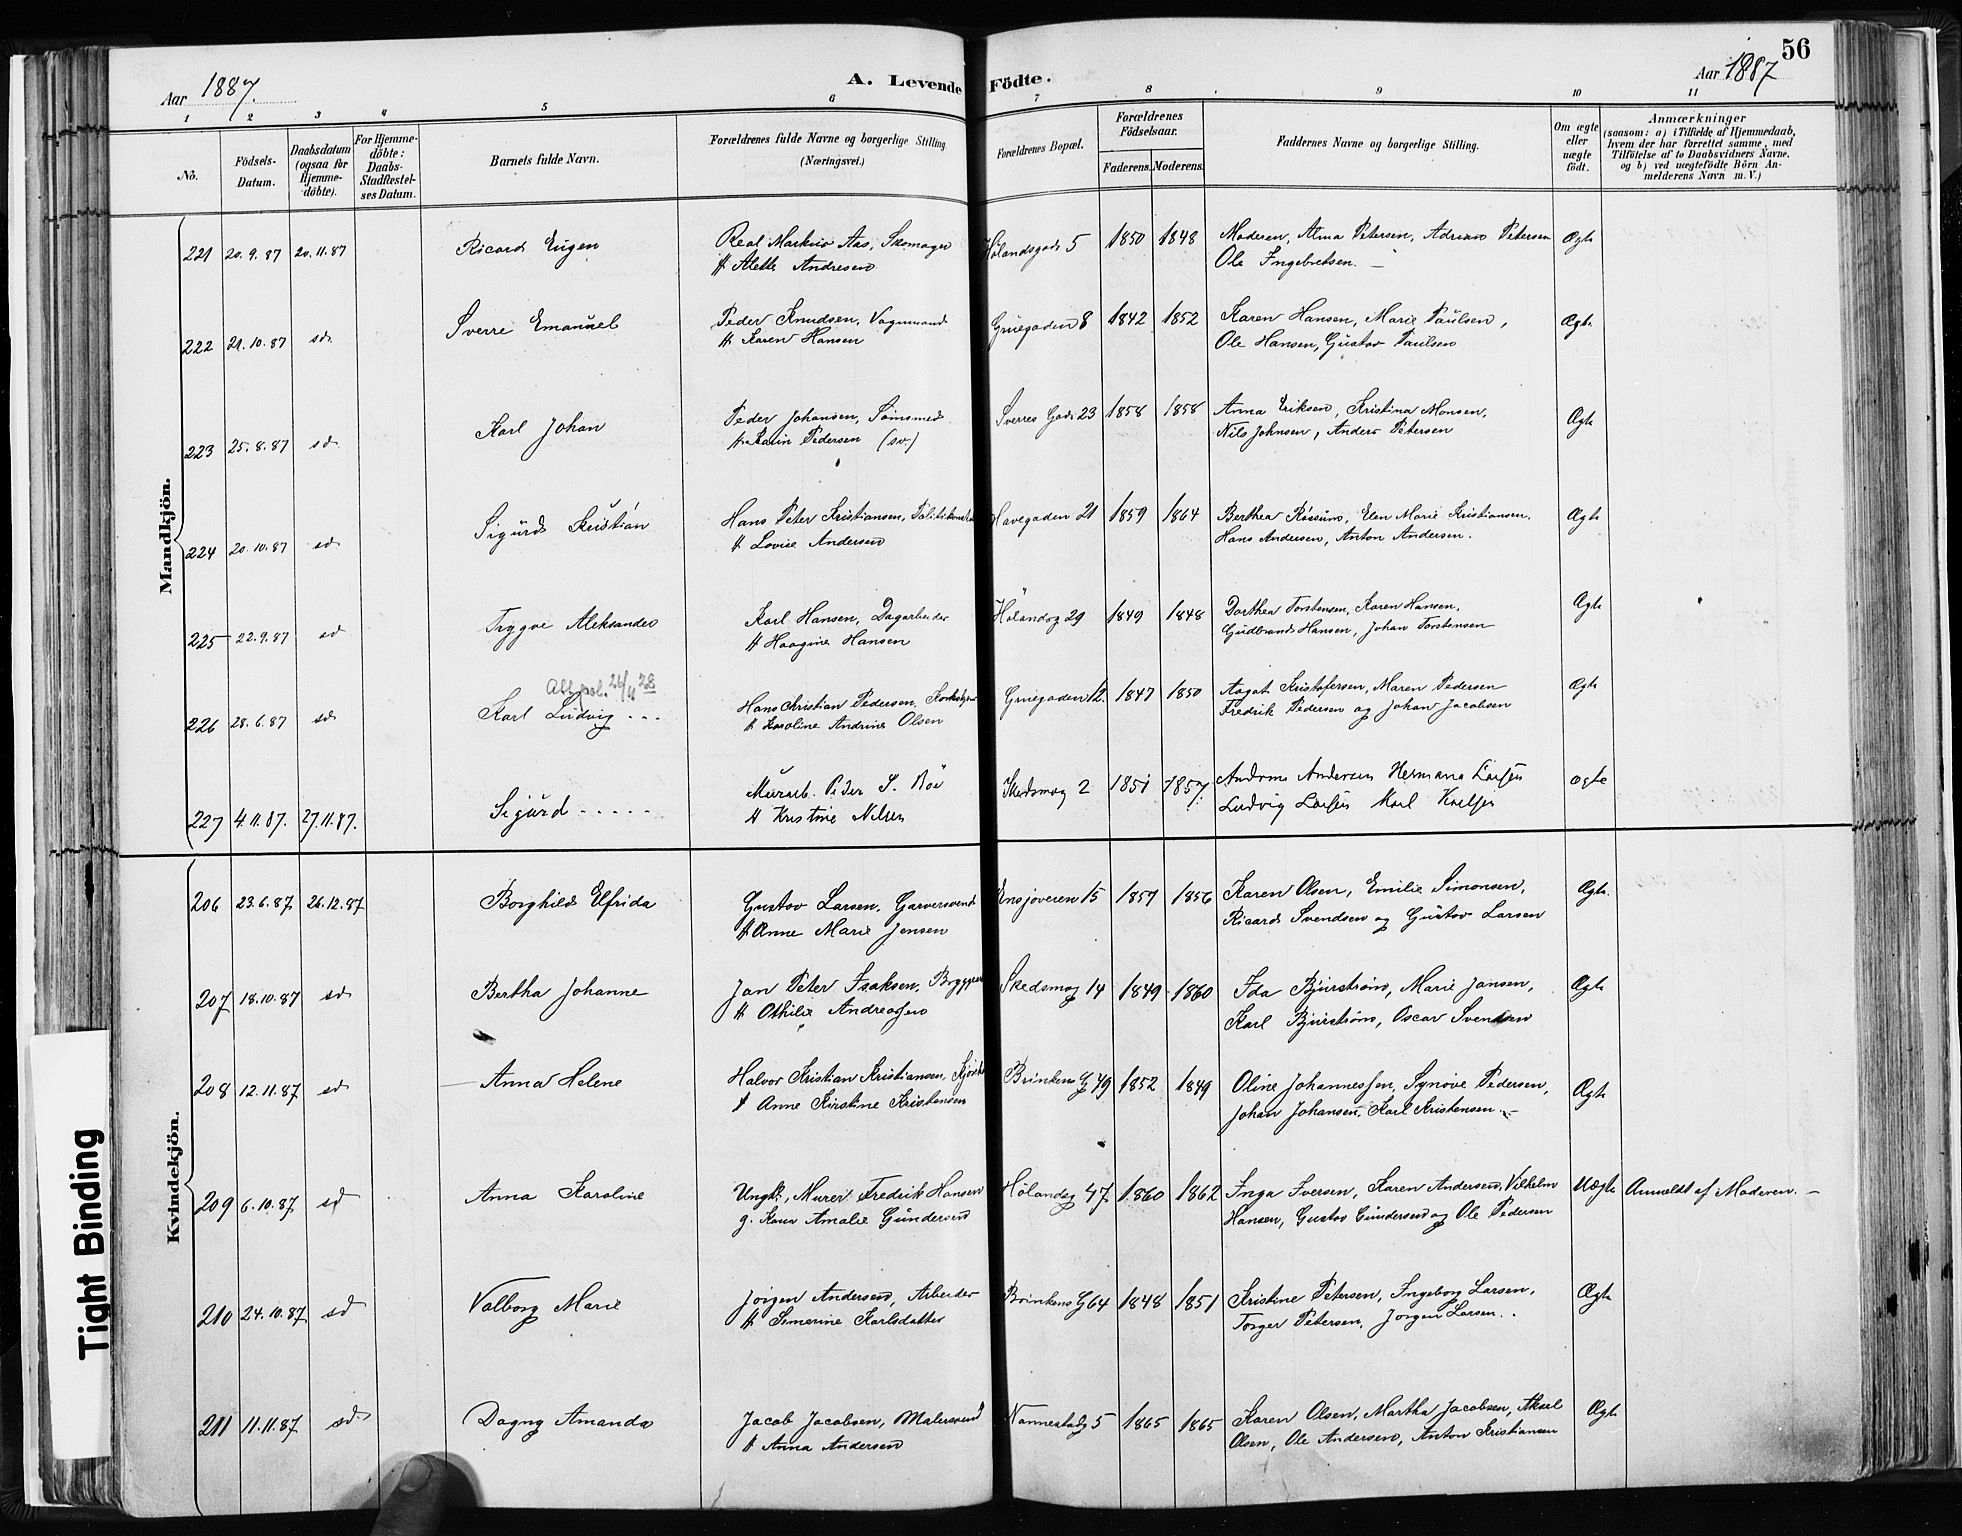 Aar 1887.
A. Levende Födte.
Aar 1887
56
1 2 3 4 5 6 7 8 9 10 11
No.
Födsels-Datum.
Daabsdatum (ogsaa for Hjemme-döbte).
For Hjemme-döbte: Daabs-Stadfæstel-ses Datum.
Barnets fulde Navn.
Forældrenes fulde Navne og borgerlige Stilling (Næringsvei.)
Forældrenes Bopæl.
Forældrenes Födselsaar.
Faderens. Moderens.
Faddernes Navne og borgerlige Stilling.
Om ægte eller uægte födt.
Anmærkninger
(saasom: a) i Tilfælde af Hjemmedaab, hvem der har forrettet samme, med Tilföielse af to Daabsvidners Navne. og b) ved uægtefödte Börn An-melderens Navn m. V.)
Mandkjön.
221 20.9.87 20.11.87 Ricard Eugen Real Markus Aas, Skomager Hölandsgad 5 1850 1848 Moderen, Alma Petersen, Adrian Petersen Ægte
& Alette Andresen Ole Ingebretsen. —
222 21.10.87 sd. Sverre Emanuel Peder Knudsen, Vognmand Gruegaden 8 1842 1852 Karen Hansen, Marie Paulsen, Ægte
& Karen Hansen Ole Hansen, Gustav Paulsen
223 25.8.87 sd Karl Johan Peder Johansen, Sömsmed Sverres Gade 23 1858 1858 Anna Eriksen, Kristina Monsen, Ægte
& Karin Pedersen (sv.) Nils Johnsen, Anders Petersen
224 20.10.87 sd Sigurd Kristian Hans Peter Kristiansen, Havegaden 21 1859 1864 Berthea Rossum, Elen Marie Kristiansen. Ægte
& Lovise Andersen Hans Andersen, Anton Andersen.
225 22.9.87 sd Trygve Aleksander Karl Hansen, Dagarbeider Hölandsg 29 1849 1848 Dorthea Torstensen, Karen Hansen. Ægte
& Haagine Hansen Gudbrand Hansen, Johan Torstensen
226 28.6.87 sd Karl Ludvig ... Hans Kristian Pedersen, Gruegaden 12. 1847 1850 Aagot Kristofersen, Maren Pedersen Ægte
& Karoline Andrine Olsen Fredrik Pedersen og Johan Jacobsen
227 4.11.87. 27.11.87. Sigurd ..... Murarb. Peder S. Böe Skedsmog 2 1851 1857 Andersen Hermana Larsen ægte
& Kristine Nilsen Ludvig Larsen Karl
Kvindekjön.
206 23.6.87 26.12.87 Borghild Elfrida Gustav Larsen, Garversvend Ensjöveien 15 1857 1856 Karen Olsen, Emilie Simonsen, Ægte.
& Anne Marie Jensen Ricard Svendsen og Gustav Larsen
207 18.10.87 sd Bertha Johanne Jan Peter Isaksen, Skedsmog 14 1849 1860 Ida Bjurström, Marie Jansen, Ægte
& Othilie Andreassen Karl Bjurström, Oscar Svendsen
208 12.11.87 sd Anna Helene Halvor Kristian Kristiansen, Brinkens G 49 1852 1849 Oline Johannessen, Synöve Pedersen, Ægte
& Anne Kirstine Kristensen Johan Johansen, Karl Kristensen. —
209 6.10.87 sd Anna Karoline Ungk., Murer Fredrik Hansen Hölandsg 47 1860 1862 Inga Iversen, Karen Andersen, Vilhelm Uægte Anmeldt af Moderen. —
g. Karen Amalie Gundersen Hansen, Gustav Gundersen og Ole Pedersen
210 24.10.87 sd Valborg Marie Jörgen Andersen, Arbeider Brinkens G 64 1848 1851 Kristine Petersen, Ingeborg Larsen, Ægte
& Simerine Karlsdatter Torger Petersen, Jörgen Larsen.
211 11.11.87 sd Dagny Amanda Jacob Jacobsen, Malersvend Nannestadg 5 1865 1865 Karen Olsen, Martha Jacobsen, Aksel Ægte
& Anna Andersen Olsen, Ole Andersen, Anton Kristiansen
Tight Binding